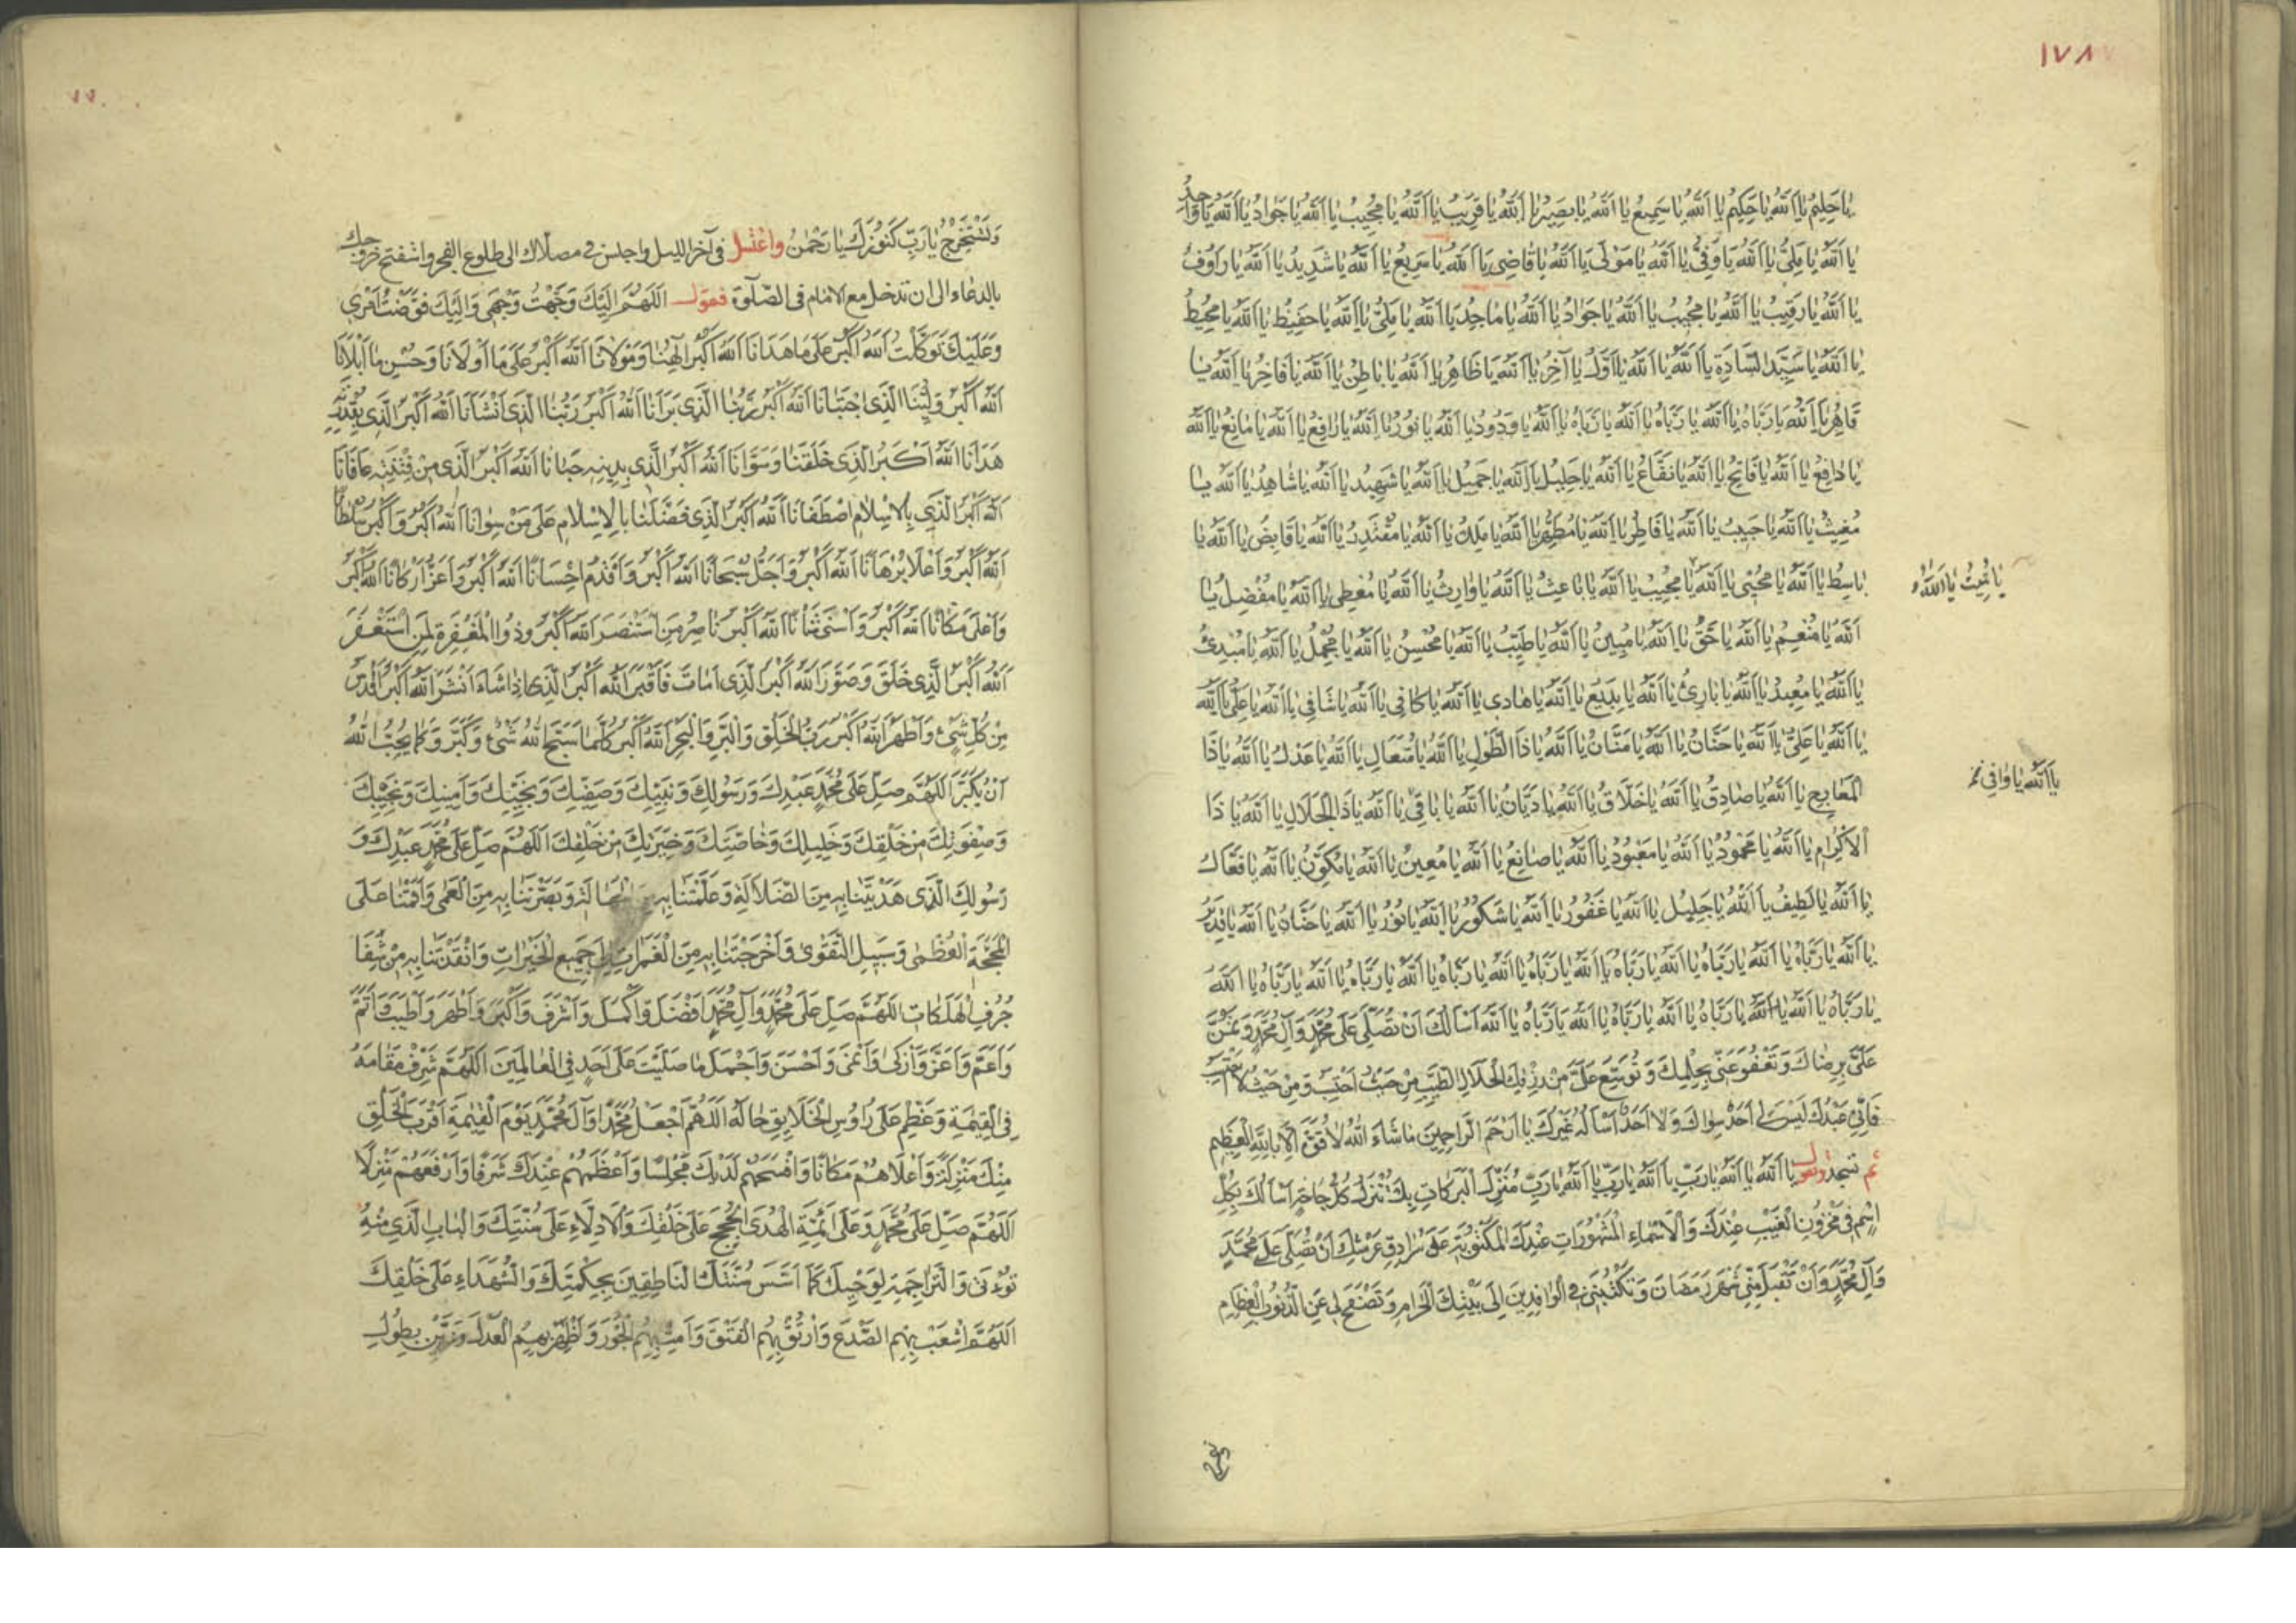 ١٧٨
يا حليم يا الله يا حكيم يا الله يا سميع يا الله يا بصير يا الله يا قريب يا الله يا مجيب يا الله يا جواد يا الله يا واحد
يا الله يا ملي يا الله يا وفي يا الله يا مولى يا الله يا قاضي يا الله يا سريع يا الله يا شديد يا الله يا رؤف
يا الله يا رقيب يا الله يا مجيب يا الله يا جواد يا الله يا ماجد يا الله يا ملي يا الله يا حفيظ يا الله يا محيط
يا الله يا سيد السادة يا الله يا الله يا اول يا آخر يا الله يا ظاهر يا الله يا باطن يا الله يا فاخر يا الله يا
قاهر يا الله يا رباه يا الله يا رباه يا الله يا رباه يا الله يا ودود يا الله يا نور يا الله يا رافع يا الله يا مانع يا الله
يا دافع يا الله يا فاتح يا الله يا نفاع يا الله يا جليل يا الله يا جميل يا الله يا شهيد يا الله يا شاهد يا الله يا
مغيث يا الله يا حبيب يا الله يا فاطر يا الله يا مطهر يا الله يا ملك يا الله يا مقتدر يا الله يا قابض يا الله يا
باسط يا الله يا محيي يا الله يا مجيب يا الله يا باعث يا الله يا وارث يا الله يا معطي يا الله يا مفضل يا
يا مميت يا الله
الله يا منعم يا الله يا حق يا الله يا مبين يا الله يا طيب يا الله يا محسن يا الله يا مجمل يا الله يا مبدئ
يا الله يا معيد يا الله يا بارئ يا الله يا بديع يا الله يا هادي يا الله يا كافي يا الله يا شافي يا الله يا علي يا الله
يا الله يا علي يا الله يا حنان يا الله يا منان يا الله يا ذا الطول يا الله يا متعال يا الله يا عدل يا الله يا ذا
يا الله يا وافي
المعارج يا الله يا صادق يا الله يا خلاق يا الله يا ديان يا الله يا باقي يا الله يا ذا الجلال يا الله يا ذا
الاكرام يا الله يا محمود يا الله يا معبود يا الله يا صانع يا الله يا معين يا الله يا مكون يا الله يا فعال
يا الله يا لطيف يا الله يا جليل يا الله يا غفور يا الله يا شكور يا الله يا نور يا الله يا حنان يا الله يا قدير
يا الله يا رباه يا الله يا رباه يا الله يا رباه يا الله يا رباه يا الله يا رباه يا الله يا رباه يا الله يا رباه يا الله
يا رباه يا الله يا الله يا رباه يا الله يا رباه يا الله يا رباه يا الله اسالك ان تصلي على محمد وآل محمد وتمن
علي برضاك وتعفو عني بحلمك وتوسع علي من رزقك الحلال الطيب من حيث احتسب ومن حيث لا احتسب
فاني عبدك ليس لي احد سواك ولا احد اساله غيرك يا ارحم الراحمين ما شاء الله لا قوة الا بالله العلي العظيم
ثم تسجد وتقول يا الله يا الله يا رب يا الله يا رب يا الله يا رب منزل البركات بك تنزل كل حاجة اسالك بكل
اسم في مخزون الغيب عندك والاسماء المشهورات عندك المكتوبة على سرادق عرشك ان تصلي على محمد
وآل محمد وان تقبل مني شهر رمضان وتكتبني في الوافدين الى بيتك الحرام وتصفح لي عن الذنوب العظام
وتستخرج يا رب كنوزك يا رحمن واغتسل في آخر الليل واجلس في مصلاك الى طلوع الفجر واستفتح خروجك
بالدعاء الى ان تدخل مع الامام في الصلوة فتقول اللهم اليك وجهت وجهي واليك فوضت امري
وعليك توكلت الله اكبر على ما هدانا الله اكبر الهنا ومولانا الله اكبر على ما اولانا وحسن ما ابلانا
الله اكبر ولينا الذي اجتبانا الله اكبر ربنا الذي برانا الله اكبر ربنا الذي انشانا الله اكبر الذي بقدرته
هدانا الله اكبر الذي خلقنا وسوانا الله اكبر الذي بدينه حبانا الله اكبر الذي من فتنته عافانا
الله اكبر الذي بالاسلام اصطفانا الله اكبر الذي فضلنا بالاسلام على من سوانا الله اكبر واكبر سلطانا
الله اكبر واعلا برهانا الله اكبر واجل سبحانا الله اكبر واقدم احسانا الله اكبر واعز اركانا الله اكبر
واعلى مكانا الله اكبر واسنى شانا الله اكبر ناصر من استنصر الله اكبر وذو المغفرة لمن استغفر
الله اكبر الذي خلق وصور الله اكبر الذي امات فاقبر الله اكبر الذي اذا شاء انشر الله اكبر اقدس
من كل شيء واطهر الله اكبر رب الخلق والبر والبحر الله اكبر كلما سبح الله شيء وكبر وكما يحب الله
ان يكبر اللهم صل على محمد عبدك ورسولك ونبيك وصفيك ونجيبك وامينك ونجيك
وصفوتك من خلقك وخليلك وخاصتك وخيرتك من خلقك اللهم صل على محمد عبدك و
رسولك الذي هديتنا به من الضلالة وعلمتنا به من الجهالة وبصرتنا به من العمى واقمتنا على
المحجة العظمى وسبيل التقوى واخرجتنا به من الغمرات الى جميع الخيرات وانقذتنا به من شفا
جرف الهلكات اللهم صل على محمد وآل محمد افضل واكمل واشرف واكبر واطهر واطيب واتم
واعم واعز وازكى وانمى واحسن واجمل ما صليت على احد في العالمين اللهم شرف مقامه
في القيمة وعظم على رؤس الخلايق حاله اللهم اجعل محمدا وآل محمد يوم القيمة اقرب الخلق
منك منزلة واعلاهم مكانا وافسحهم لديك مجلسا واعظمهم عندك شرفا وارفعهم منزلا
اللهم صل على محمد وعلى ائمة الهدى الحجج على خلقك والادلاء على سنتك والباب الذي منه
تؤتى والتراجمة لوحيك كما سنتك الناطقين بحكمتك والشهداء على خلقك
اللهم اشعب بهم الصدع وارتق بهم الفتق وامت بهم الجور واظهر بهم العدل وزين بطول